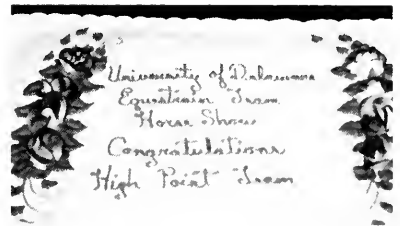 University of Delaware
Equestrain Team
Horse Show
Congratulations
High Point Team